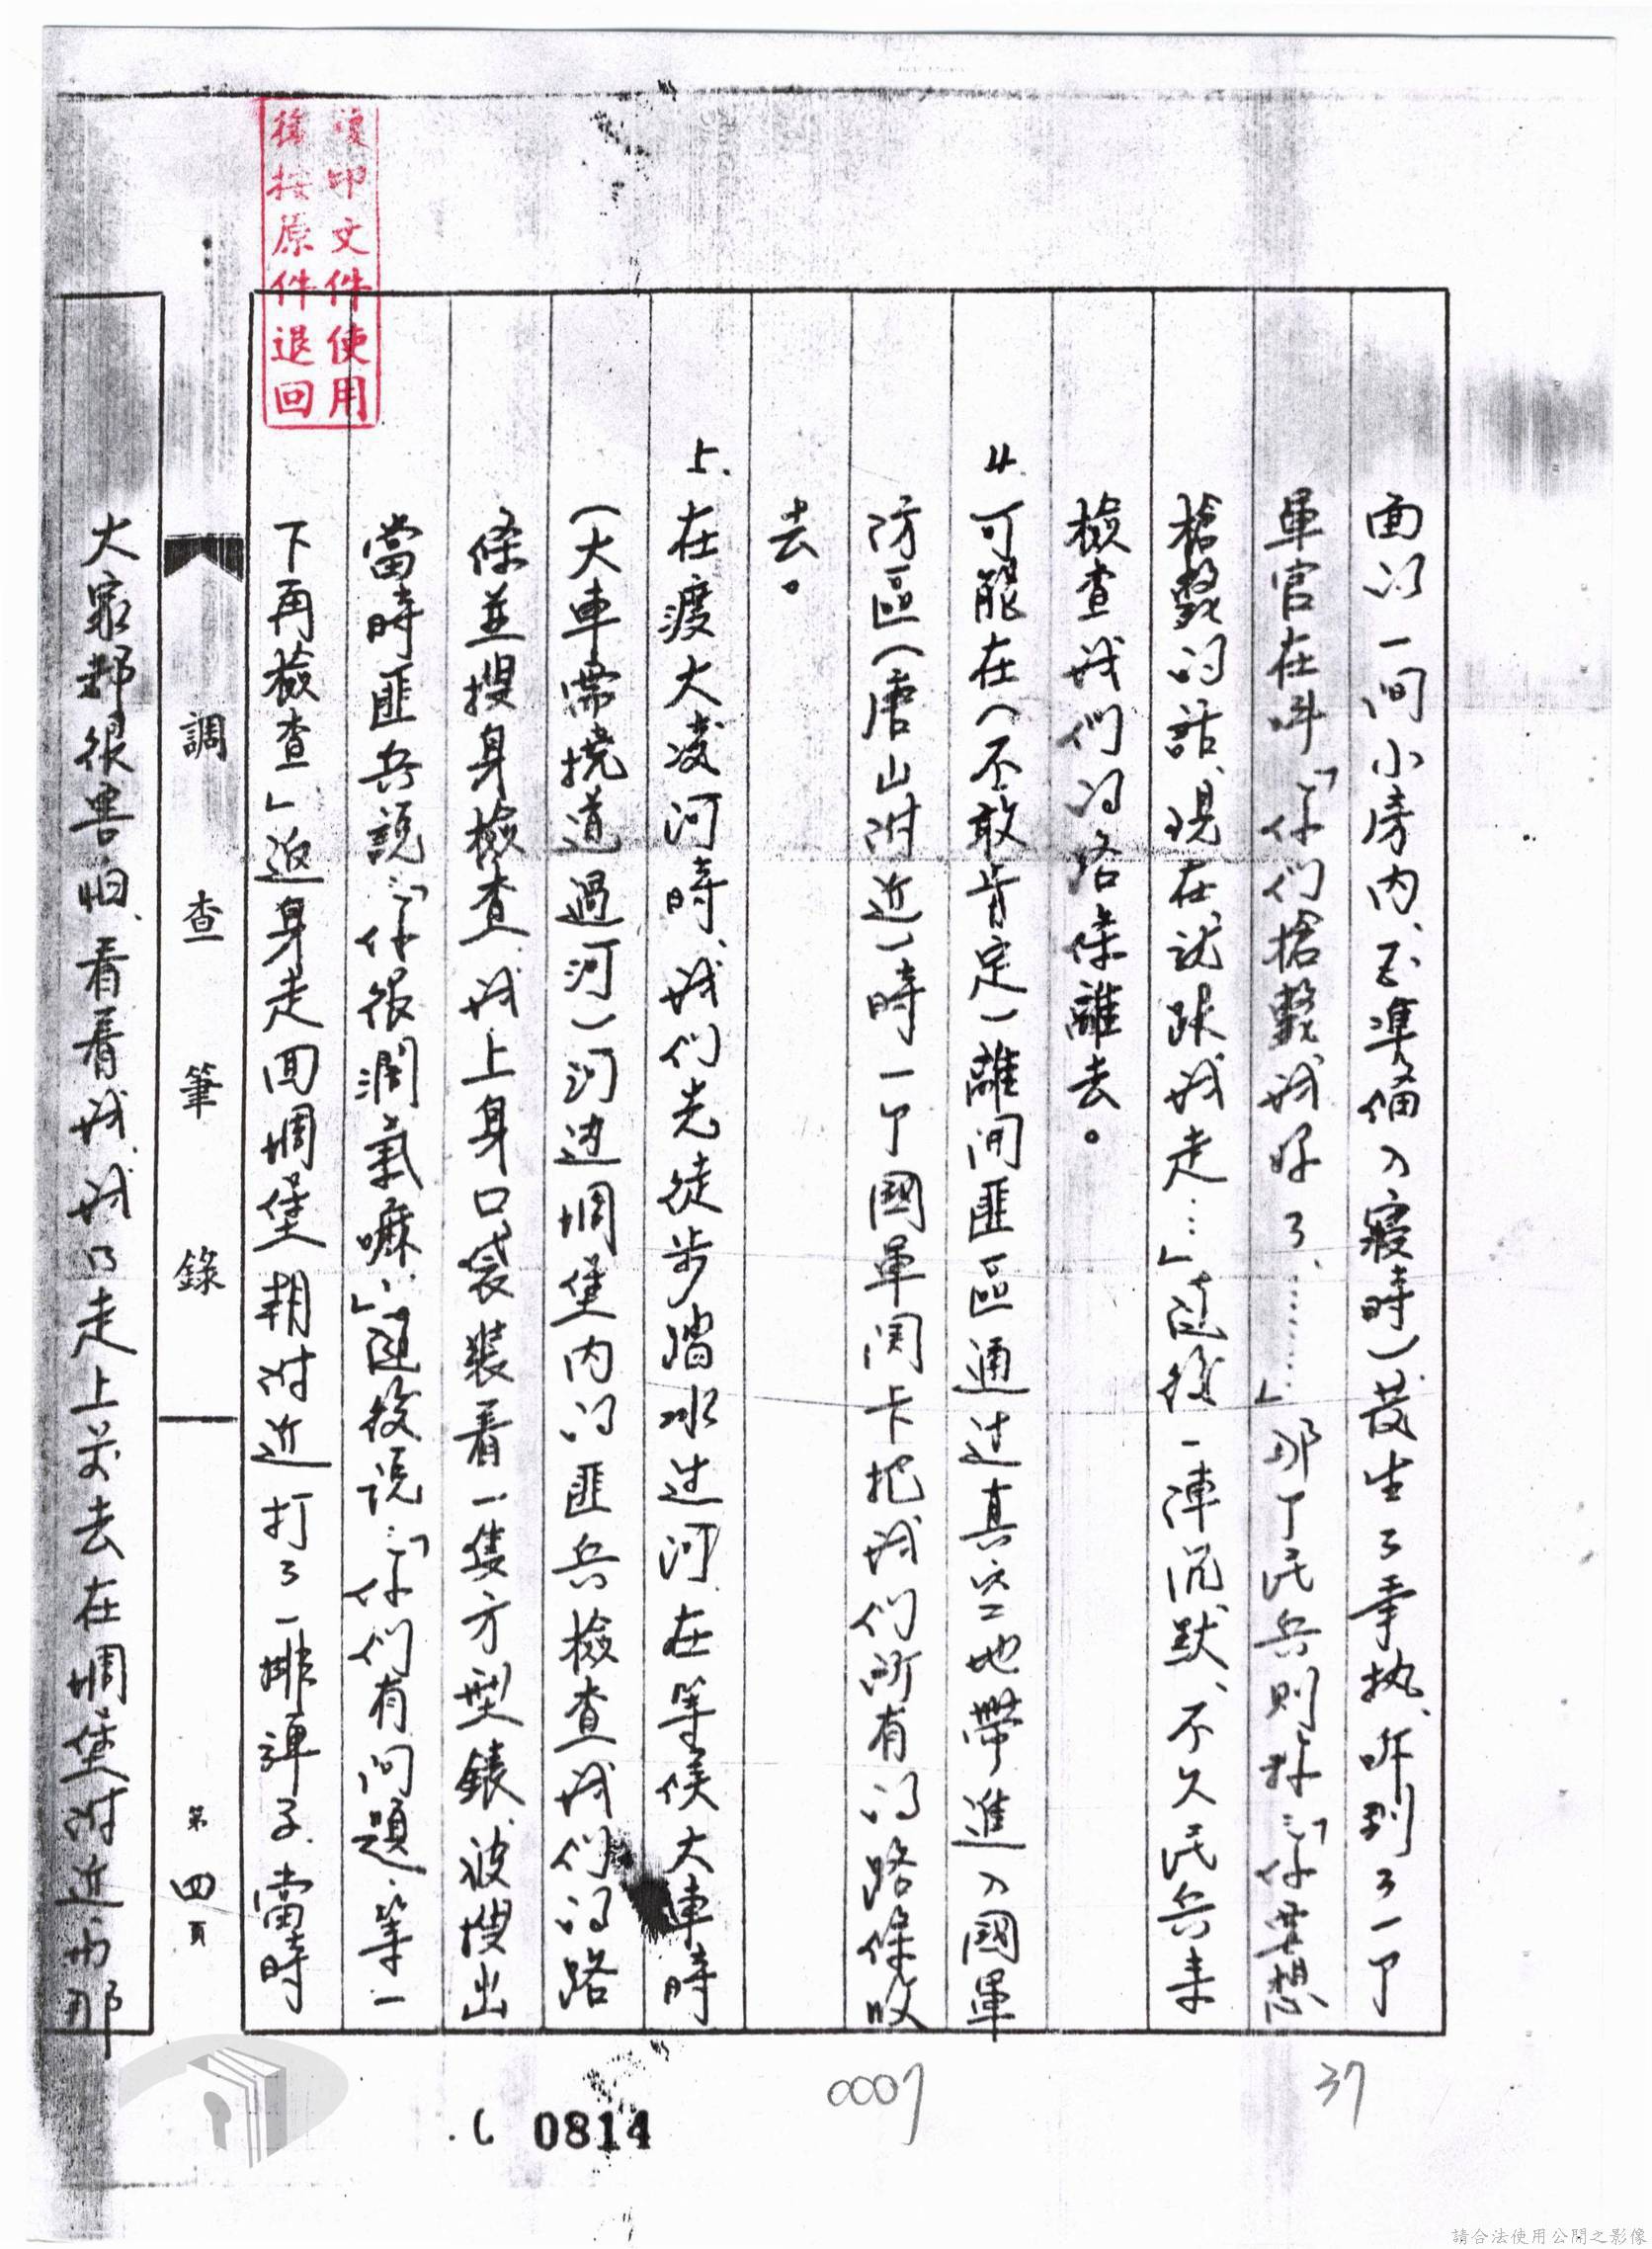 面的一間小房內、正準備入寢時)發生了爭执、听到了一个
軍官在叫「你們槍斃我好了、……」那个民兵則称:「你要想
槍斃的話、現在就跟我走…」随後一陣沉默、不久民兵未
檢查我們的路條離去。
4. 可能在(不敢肯定)離開匪區通过真空地帶進入國軍
防區(唐山附近)時一个國軍関卡把我們所有的路條收
去。
5. 在渡大凌河時、我们先徒步踏水过河、在等候大車時
(大車需撓道過河)河边堋堡內的匪兵檢查我们的路
條並搜身檢查、我上身口袋裝着一隻方型錶、被搜出
當時匪兵說:「你很濶氣嘛」、随後说:「你們有问題、等一
下再檢查」返身走回堋堡、朝附近打了一排弹子、當時
調查筆錄
第四頁
大家都很害怕、看看我、我乃走上前去在堋堡附近与那
複印文件使用
後按原件退回
37
0007
0814
請合法使用公開之影像